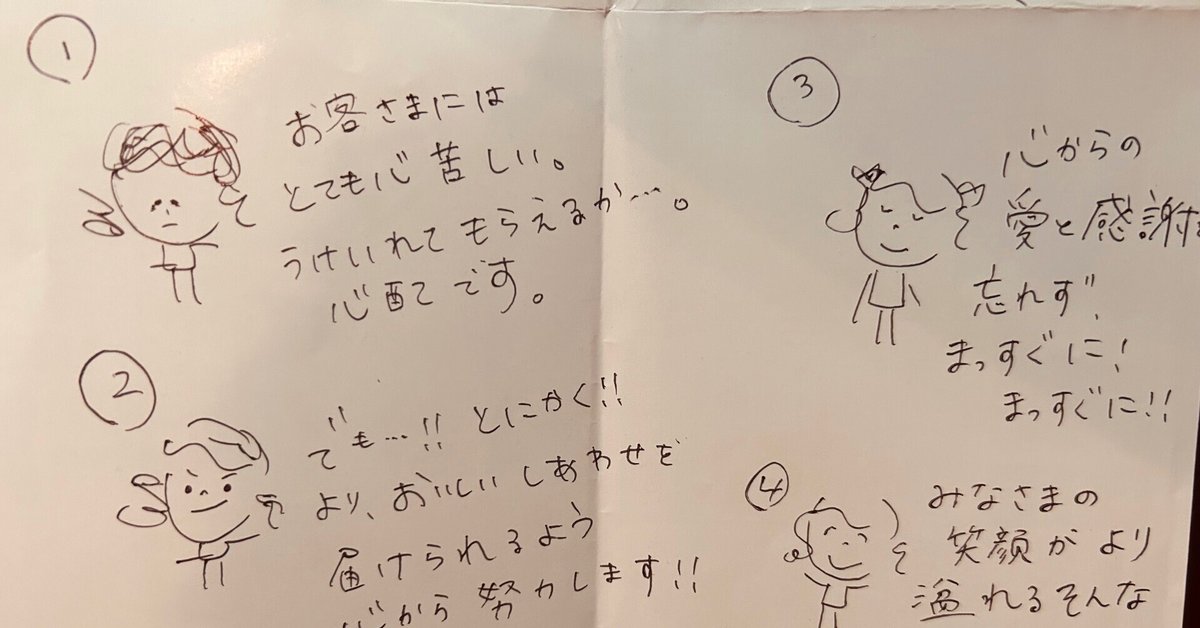 ①
お客さまには
とても心苦しい。
うけいれてもらえるか…。
心配です。
②
でも…!! とにかく!!
より、おいしいしあわせを
届けられるよう
心から努力します!!
③
心からの
愛と感謝を
忘れず、
まっすぐに!
まっすぐに!!
④
みなさまの
笑顔がより
溢れるそんな